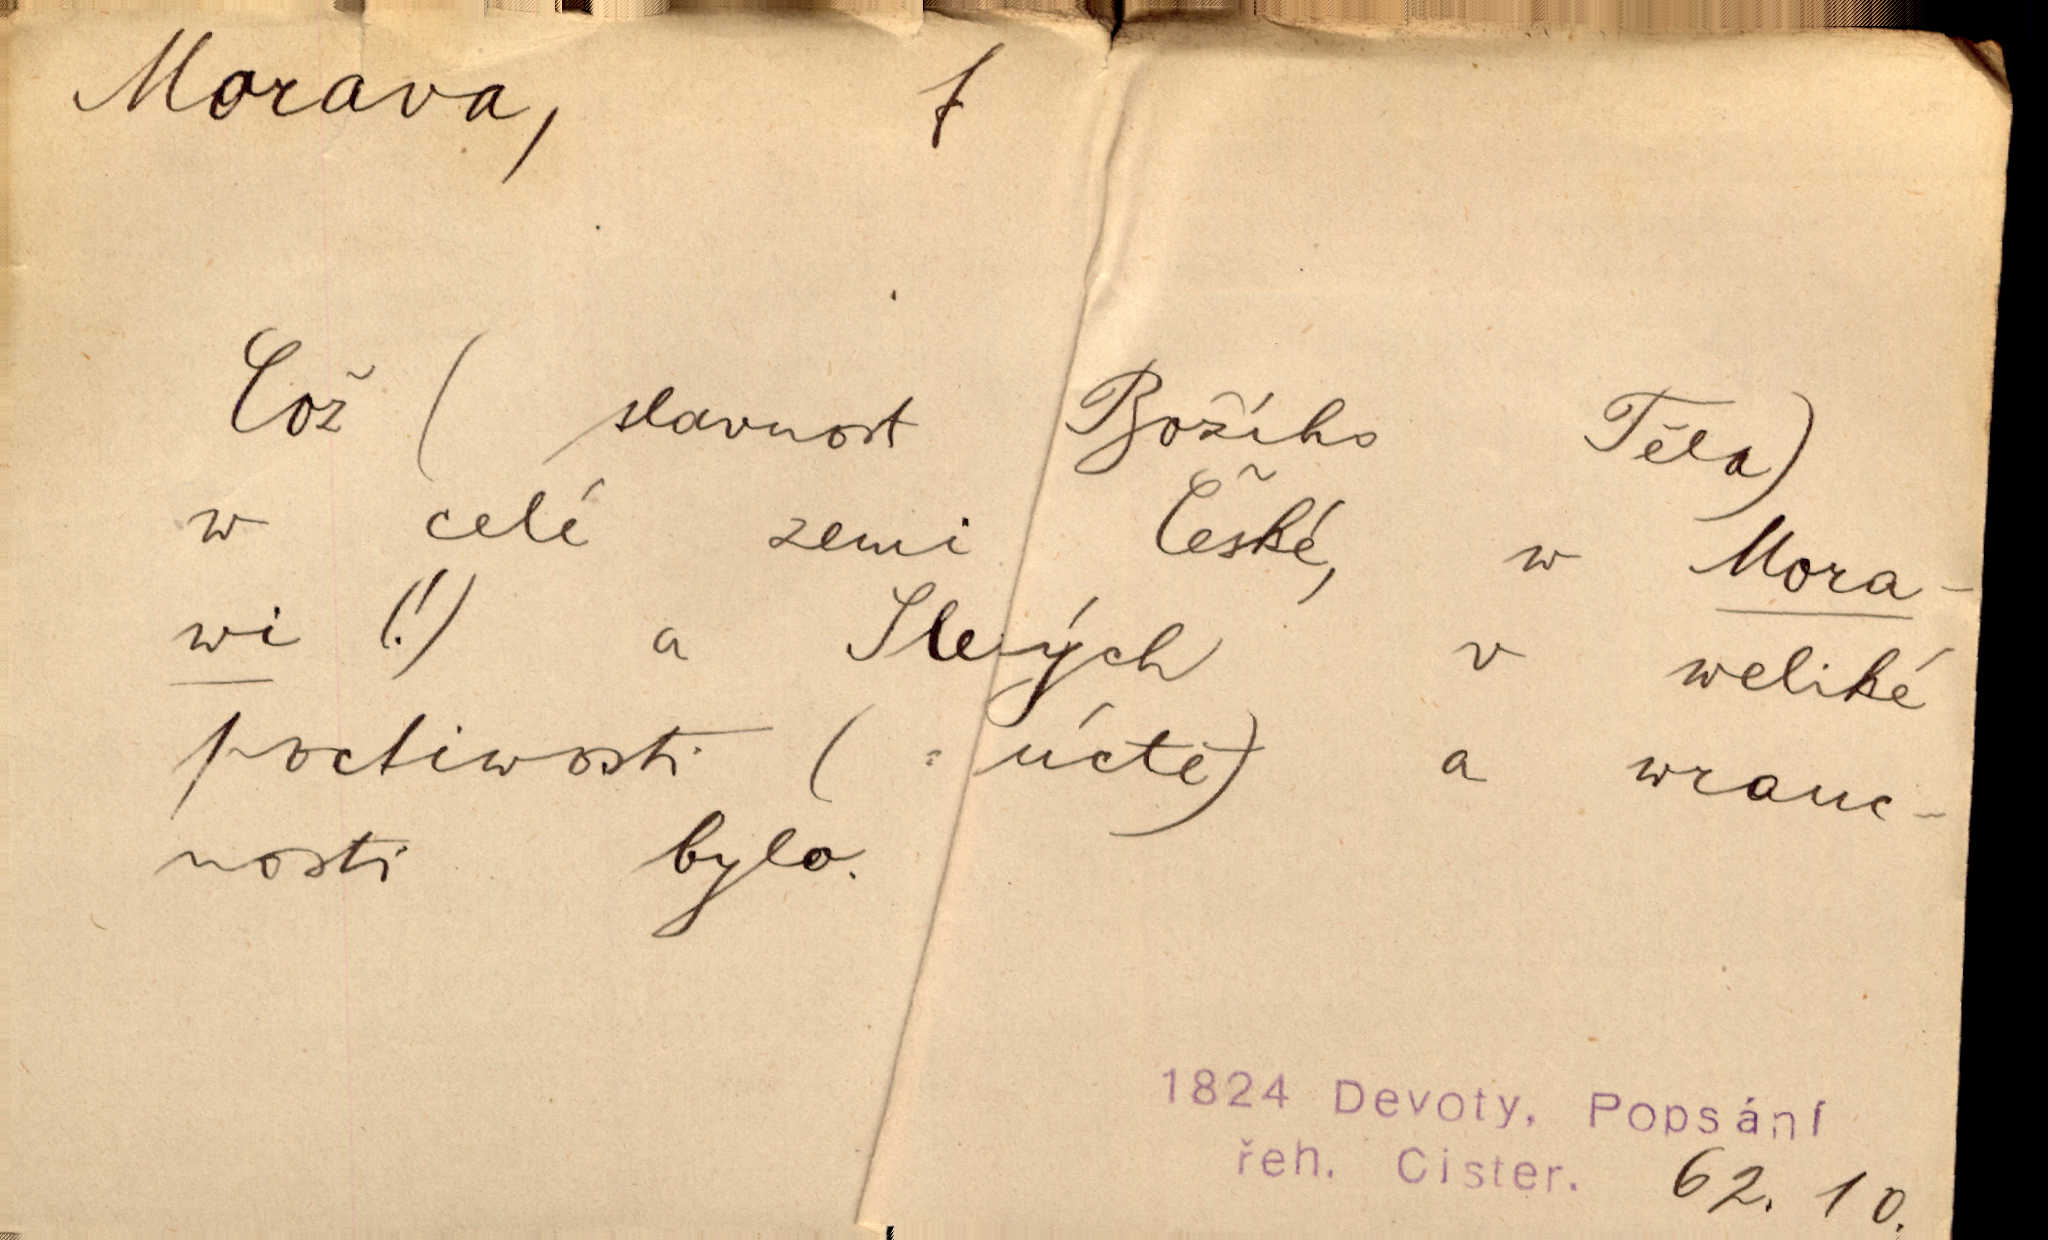 Morava, f
Což (slavnost Božího Těla)
w celé zemi České, w Mora-
wi (!) a Slezých v weliké
poctiwosti (= úctě) a wrauc-
nosti bylo.
1824 Devoty, Popsání
řeh. Cister. 62. 10.